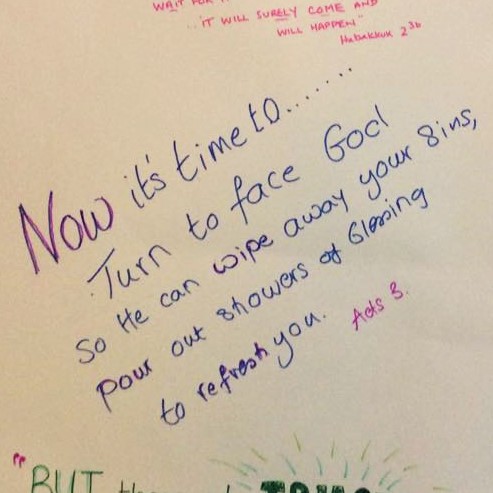 WAIT FOR
..IT WILL SURELY COME AND
WILL HAPPEN"
Habakkuk 2 3b
Now it's time to.......
Turn to face God
So He can wipe away your sins,
pour out showers of blessing
to refresh you. Acts 3.
"BUT